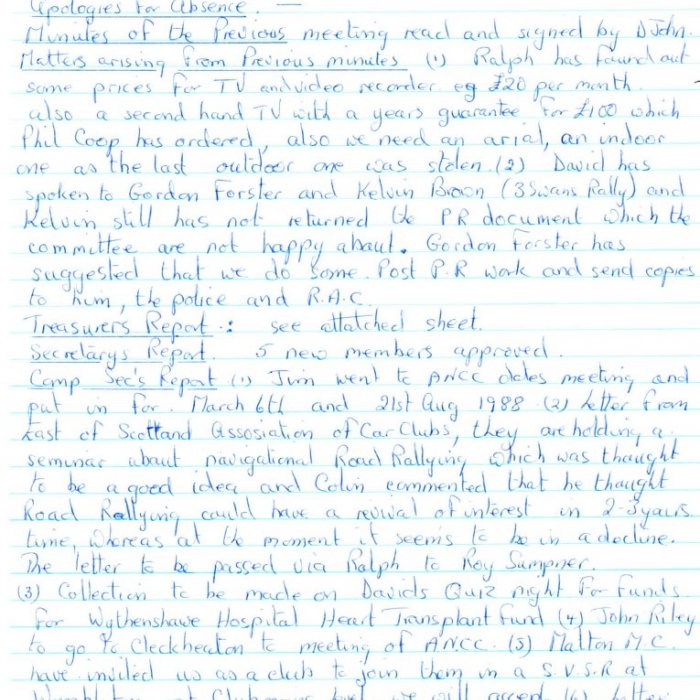 Apologies for Absence. —
Minutes of the Previous meeting read and signed by D John.
Matters arising from Previous minutes (1) Ralph has found out
some prices for TV and video recorder eg £20 per month
also a second hand TV with a years guarantee for £100 which
Phil Coop has ordered, also we need an arial, an indoor
one as the last outdoor one was stolen. (2) David has
spoken to Gordon Forster and Kelvin Brown (3 Swans Rally) and
Kelvin still has not returned the PR document which the
committee are not happy about. Gordon Forster has
suggested that we do some Post P.R work and send copies
to him, the police and R.A.C.
Treasurers Report : see attatched sheet.
Secretarys Report. 5 new members approved.
Comp Sec's Report (1) Jim went to ANCC dates meeting and
put in for March 6th and 21st Aug 1988 (2) Letter from
East of Scotland Assosiation of Car Clubs, they are holding a
seminar about navigational Road Rallying which was thought
to be a good idea and Colin commented that he thought
Road Rallying could have a revival of interest in 2-3 years
time, whereas at the moment it seems to be in a decline.
The letter to be passed via Ralph to Roy Sumpner.
(3) Collection to be made on Davids Quiz night for funds
for Wythenshawe Hospital Heart Transplant Fund (4) John Riley
to go to Cleckheaton to meeting of ANCC. (5) Malton M.C.
have invited us as a club to join them in a S.V.S.R at
we will accept (6) Letter